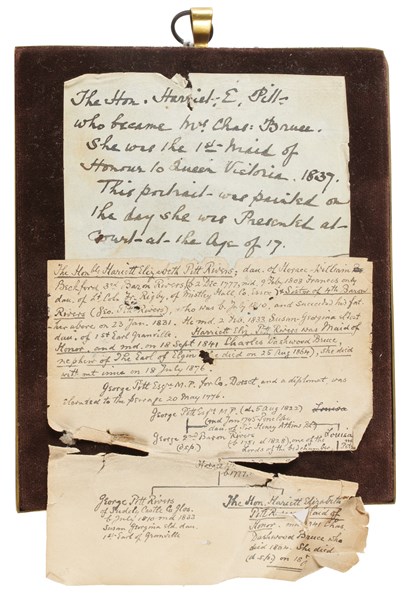 The Hon. Harriet. E. Pitt
who became Mrs Chas: Bruce.
She was the 1st Maid of
Honour to Queen Victoria. 1837.
This portrait was painted on
the day she was Presented at
Court at the Age of 17.
The Honble Harriett Elizabeth Pitt Rivers, dau. of Horace William
Beckford, 3rd Baron Rivers, b. 2 Dec. 1777, md. 9 Feb. 1808 Frances only
dau. of Lt. Col. Rigby, of Mistley Hall Co. Essex, & Sister of 4th Baron
Rivers (Geo. Pitt Rivers), who was b. 16 July 1810, and succeeded his fat
her above on 23 Jan. 1831. He md. 2 Feb. 1833 Susan Georgina eldest
dau. of 1st Earl Granville. Harriett Eliz. Pitt Rivers was Maid of
Honor, and md. on 18 Sept 1841 Charles Dashwood Bruce,
nephew of The Earl of Elgin (he died on 25 Aug 1864), She died
without issue on 18 July 1876.
George Pitt Esqre M.P. for Co. Dorset, and a diplomat, was
elevated to the Peerage 20 May 1776.
George Pitt Esqre M.P. Louisa
(md Jan 1745 Penelope
dau. of Sir Henry Atkins Bt)
George 2nd Baron Rivers Louisa
(d.s.p.) one of the
Lords of the bedchamber
George Pitt Rivers
of Sudeley Castle Co Glos.
b. July 1810 md 1833
Susan Georgina eld. dau.
1st Earl of Granville
The Hon. Harriett Elizabeth
Pitt Rivers Maid of
Honor, md 1841 Chas
Dashwood Bruce who
died 1864. She died
(d.s.p.) on 18